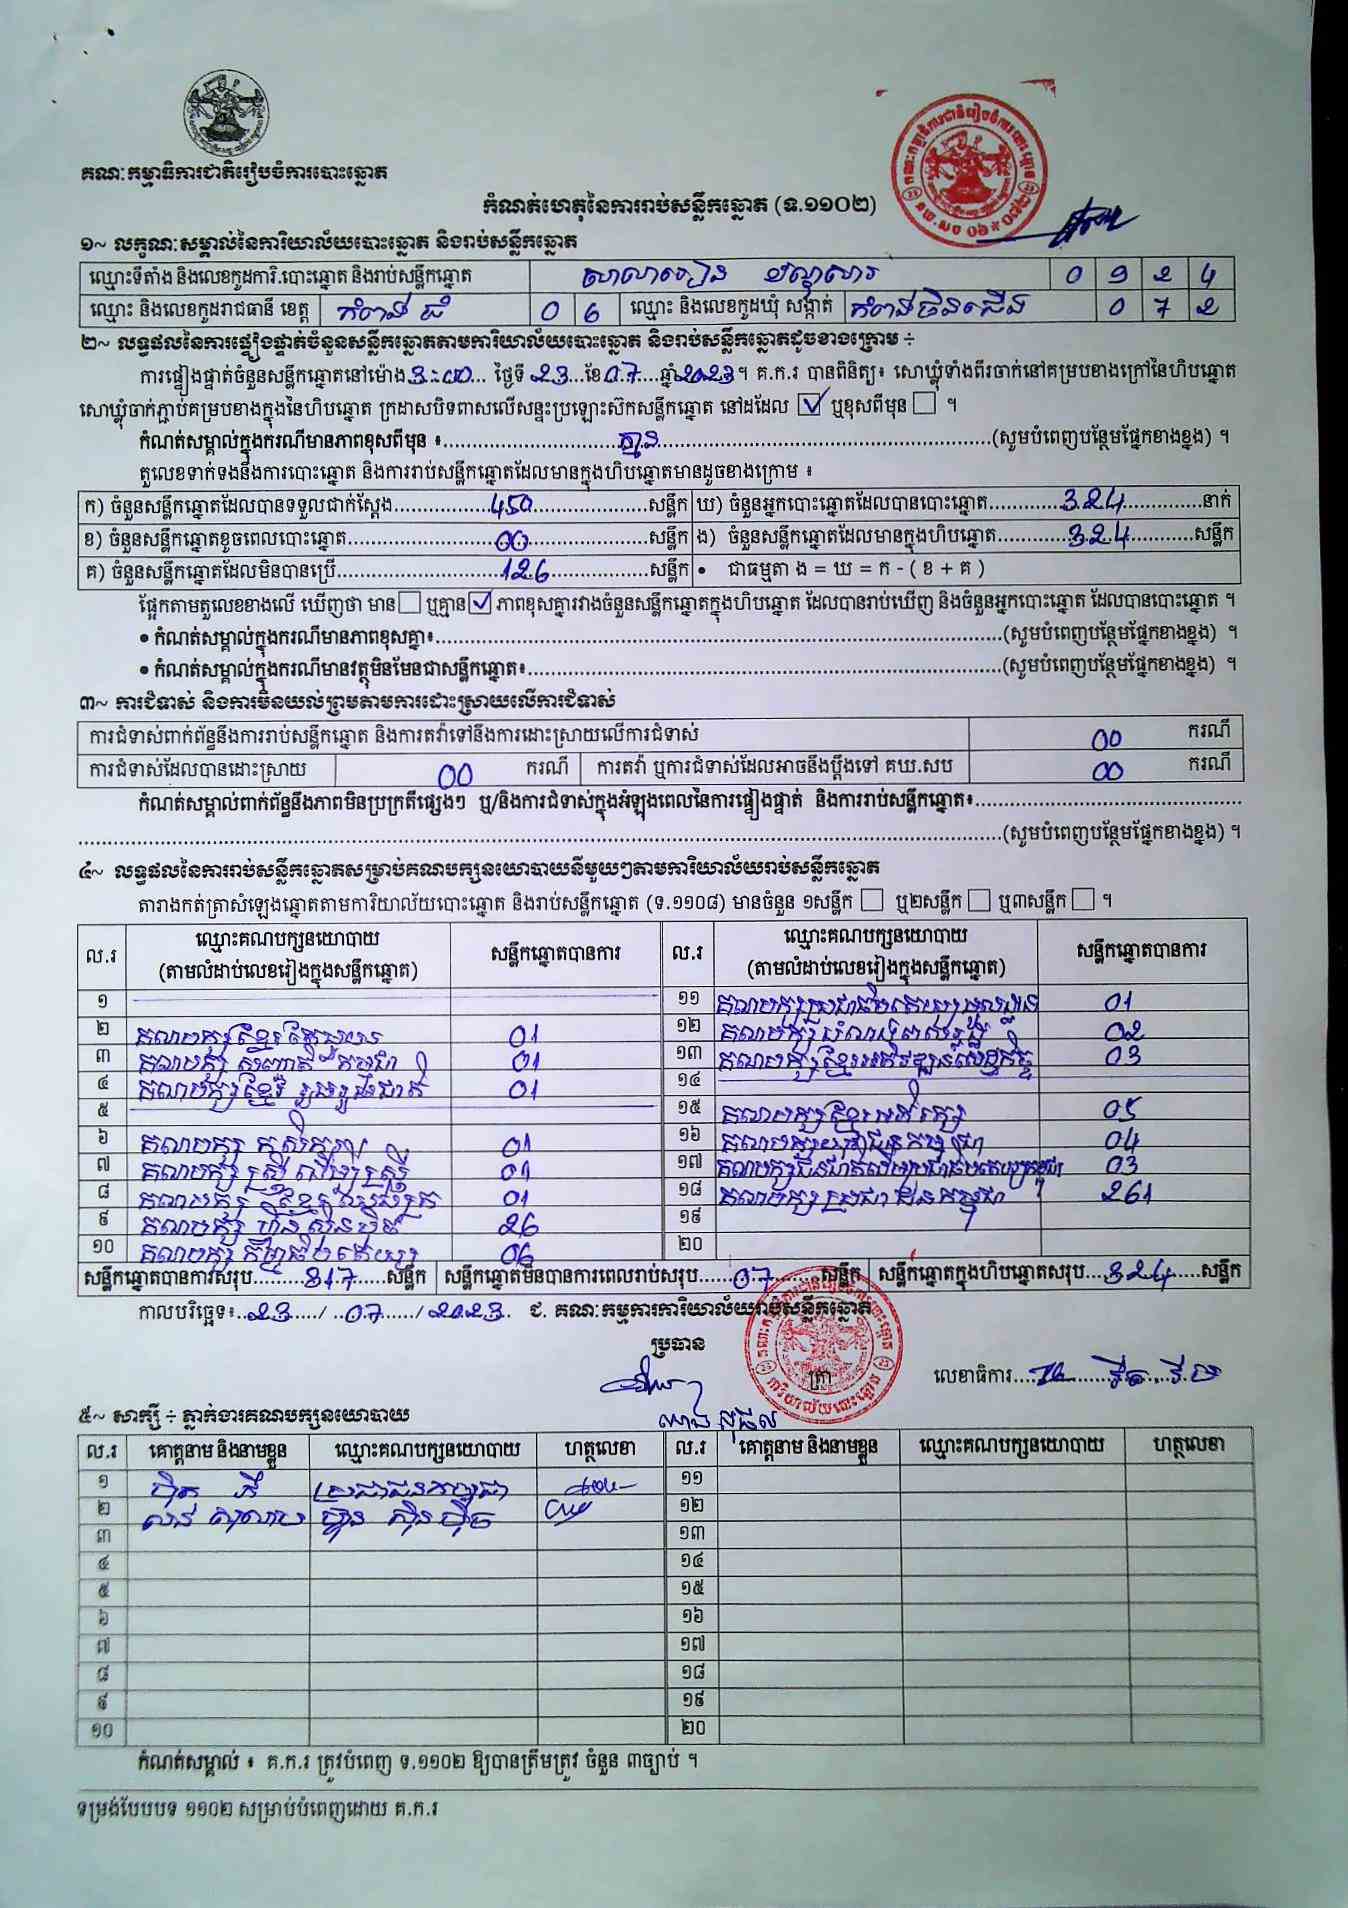 គណៈកម្មាធិការជាតិរៀបចំការបោះឆ្នោត
កំណត់ហេតុនៃការរាប់សន្លឹកឆ្នោត (ទ.១១០២)
១~ លក្ខណៈសម្គាល់នៃការិយាល័យបោះឆ្នោត និងរាប់សន្លឹកឆ្នោត
ឈ្មោះទីតាំង និងលេខកូដការិ.បោះឆ្នោត និងរាប់សន្លឹកឆ្នោត សាលារៀន 0 9 2 4
ឈ្មោះ និងលេខកូដរាជធានី ខេត្ត កំពង់ ធំ 0 6 ឈ្មោះ និងលេខកូដឃុំ សង្កាត់ កំពង់ចិនជើង 0 7 2
២~ លទ្ធផលនៃការផ្ទៀងផ្ទាត់ចំនួនសន្លឹកឆ្នោតតាមការិយាល័យបោះឆ្នោត និងរាប់សន្លឹកឆ្នោតដូចខាងក្រោម ÷
ការផ្ទៀងផ្ទាត់ចំនួនសន្លឹកឆ្នោតនៅម៉ោង 3:00 ថ្ងៃទី 23 ខែ 07 ឆ្នាំ 2023 ។ គ.ក.រ បានពិនិត្យ៖ សោឃ្លុំទាំងពីរចាក់នៅគម្របខាងក្រៅនៃហិបឆ្នោត
សោឃ្លុំចាក់ភ្ជាប់គម្របខាងក្នុងនៃហិបឆ្នោត ក្រដាសបិទពាសលើសន្ទះប្រឡោះស៊កសន្លឹកឆ្នោត នៅដដែល ☑ ឬខុសពីមុន ☐ ។
កំណត់សម្គាល់ក្នុងករណីមានភាពខុសពីមុន ៖ គ្មាន (សូមបំពេញបន្ថែមផ្នែកខាងខ្នង) ។
តួលេខទាក់ទងនឹងការបោះឆ្នោត និងការរាប់សន្លឹកឆ្នោតដែលមានក្នុងហិបឆ្នោតមានដូចខាងក្រោម ៖
ក) ចំនួនសន្លឹកឆ្នោតដែលបានទទួលជាក់ស្តែង 450 សន្លឹក ឃ) ចំនួនអ្នកបោះឆ្នោតដែលបានបោះឆ្នោត 324 នាក់
ខ) ចំនួនសន្លឹកឆ្នោតខូចពេលបោះឆ្នោត 00 សន្លឹក ង) ចំនួនសន្លឹកឆ្នោតដែលមានក្នុងហិបឆ្នោត 324 សន្លឹក
គ) ចំនួនសន្លឹកឆ្នោតដែលមិនបានប្រើ 126 សន្លឹក • ជាធម្មតា ង = ឃ = ក - ( ខ + គ )
ផ្អែកតាមតួលេខខាងលើ ឃើញថា មាន ☐ ឬគ្មាន ☑ ភាពខុសគ្នារវាងចំនួនសន្លឹកឆ្នោតក្នុងហិបឆ្នោត ដែលបានរាប់ឃើញ និងចំនួនអ្នកបោះឆ្នោត ដែលបានបោះឆ្នោត ។
• កំណត់សម្គាល់ក្នុងករណីមានភាពខុសគ្នា៖ (សូមបំពេញបន្ថែមផ្នែកខាងខ្នង) ។
• កំណត់សម្គាល់ក្នុងករណីមានវត្ថុមិនមែនជាសន្លឹកឆ្នោត៖ (សូមបំពេញបន្ថែមផ្នែកខាងខ្នង) ។
៣~ ការជំទាស់ និងការមិនយល់ព្រមតាមការដោះស្រាយលើការជំទាស់
ការជំទាស់ពាក់ព័ន្ធនឹងការរាប់សន្លឹកឆ្នោត និងការតវ៉ាទៅនឹងការដោះស្រាយលើការជំទាស់ 00 ករណី
ការជំទាស់ដែលបានដោះស្រាយ 00 ករណី ការតវ៉ា ឬការជំទាស់ដែលអាចនឹងប្តឹងទៅ គឃ.សប 00 ករណី
កំណត់សម្គាល់ពាក់ព័ន្ធនឹងភាពមិនប្រក្រតីផ្សេងៗ ឬ/និងការជំទាស់ក្នុងអំឡុងពេលនៃការផ្ទៀងផ្ទាត់ និងការរាប់សន្លឹកឆ្នោត៖
(សូមបំពេញបន្ថែមផ្នែកខាងខ្នង) ។
៤~ លទ្ធផលនៃការរាប់សន្លឹកឆ្នោតសម្រាប់គណបក្សនយោបាយនីមួយៗតាមការិយាល័យរាប់សន្លឹកឆ្នោត
តារាងកត់ត្រាសំឡេងឆ្នោតតាមការិយាល័យបោះឆ្នោត និងរាប់សន្លឹកឆ្នោត (ទ.១១០៨) មានចំនួន ១សន្លឹក ☐ ឬ២សន្លឹក ☐ ឬ៣សន្លឹក ☐ ។
ល.រ ឈ្មោះគណបក្សនយោបាយ (តាមលំដាប់លេខរៀងក្នុងសន្លឹកឆ្នោត) សន្លឹកឆ្នោតបានការ ល.រ ឈ្មោះគណបក្សនយោបាយ (តាមលំដាប់លេខរៀងក្នុងសន្លឹកឆ្នោត) សន្លឹកឆ្នោតបានការ
១ ១១ គណបក្សប្រជាធិបតេយ្យមូលដ្ឋាន 01
២ គណបក្សខ្មែរតែមួយ 01 ១២ គណបក្ស 02
៣ គណបក្ស សញ្ជាតិកម្ពុជា 01 ១៣ គណបក្សខ្មែរអភិវឌ្ឍន៍សេដ្ឋកិច្ច 03
៤ គណបក្សខ្មែរ រួបរួមជាតិ 01 ១៤
៥ ១៥ គណបក្សខ្មែរអភិរក្ស 05
៦ គណបក្ស 01 ១៦ គណបក្សយុវជនកម្ពុជា 04
៧ គណបក្ស ស្ត្រី ដើម្បីស្ត្រី 01 ១៧ គណបក្សជនជាតិដើមប្រជាធិបតេយ្យកម្ពុជា 03
៨ គណបក្ស ខ្មែរ ឈប់ក្រ 01 ១៨ គណបក្ស ប្រជាជនកម្ពុជា 261
៩ គណបក្ស ហ៊្វុនស៊ិនប៉ិច 26 ១៩
១០ គណបក្ស កម្លាំងប្រជាធិបតេយ្យ 06 ២០
សន្លឹកឆ្នោតបានការសរុប 317 សន្លឹក សន្លឹកឆ្នោតមិនបានការពេលរាប់សរុប 07 សន្លឹក សន្លឹកឆ្នោតក្នុងហិបឆ្នោតសរុប 324 សន្លឹក
កាលបរិច្ឆេទ៖ 23 / 07 / 2023. ជ. គណៈកម្មការការិយាល័យរាប់សន្លឹកឆ្នោត
ប្រធាន
ត្រា លេខាធិការ
៥~ សាក្សី ÷ ភ្នាក់ងារគណបក្សនយោបាយ
ល.រ គោត្តនាម និងនាមខ្លួន ឈ្មោះគណបក្សនយោបាយ ហត្ថលេខា ល.រ គោត្តនាម និងនាមខ្លួន ឈ្មោះគណបក្សនយោបាយ ហត្ថលេខា
១ ប្រជាជនកម្ពុជា ១១
២ ហ៊្វុន ស៊ិន ប៉ិច ១២
៣ ១៣
៤ ១៤
៥ ១៥
៦ ១៦
៧ ១៧
៨ ១៨
៩ ១៩
១០ ២០
កំណត់សម្គាល់ ៖ គ.ក.រ ត្រូវបំពេញ ទ.១១០២ ឱ្យបានត្រឹមត្រូវ ចំនួន ៣ច្បាប់ ។
ទម្រង់បែបបទ ១១០២ សម្រាប់បំពេញដោយ គ.ក.រ